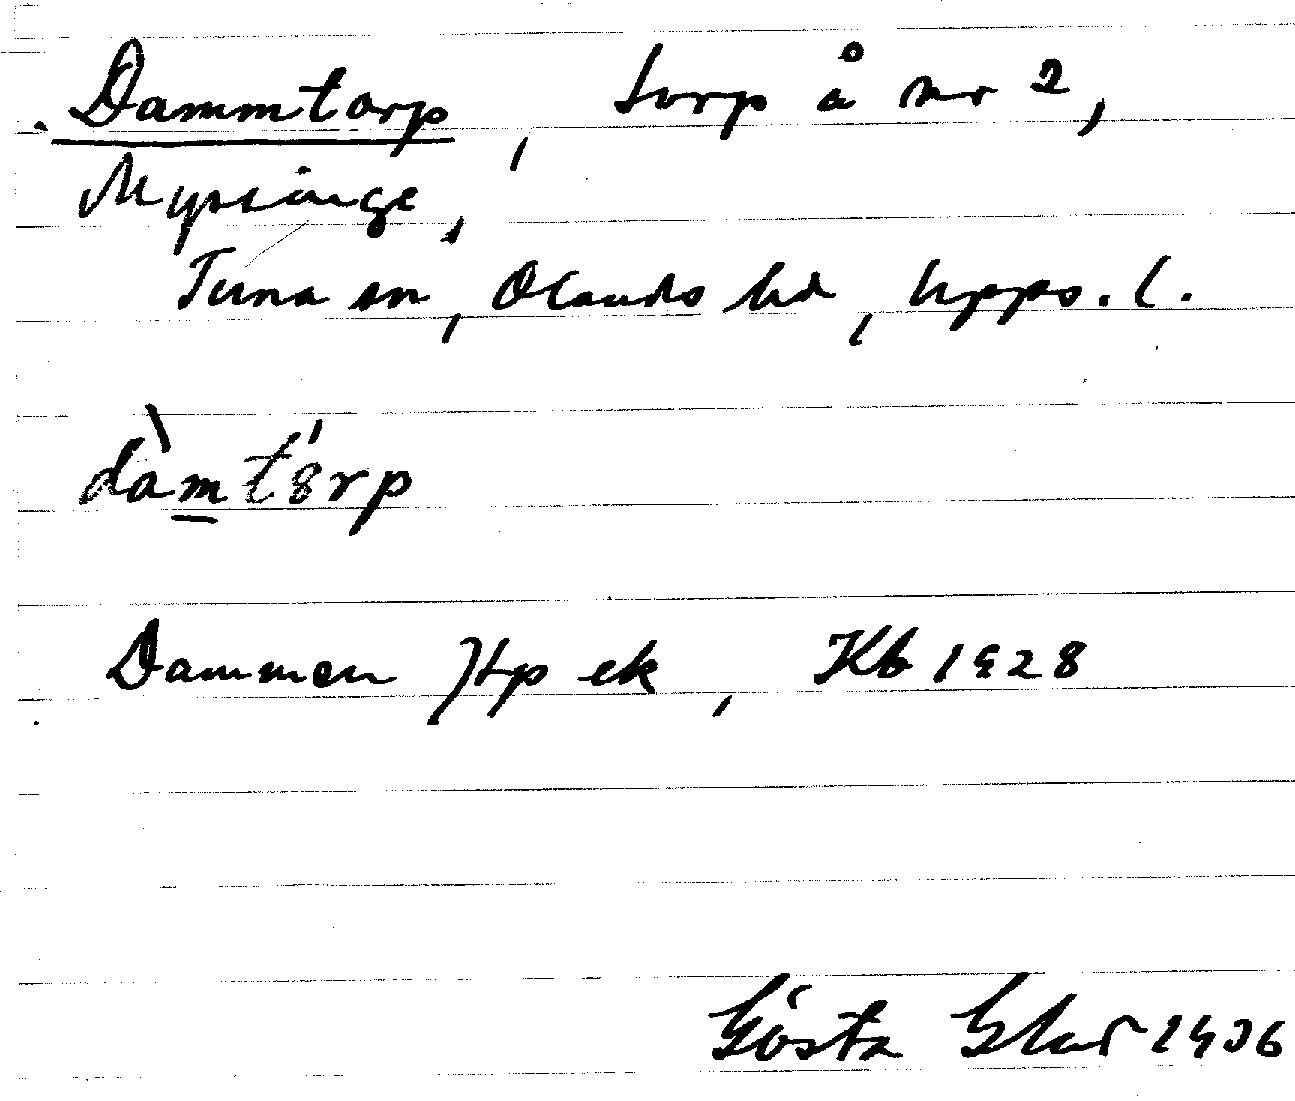 Dammtorp, torp å nr 2,
Mysinge,
Tuna sn, Olands hd, Upps. l.
dàmtó̤rp
Dammen Htp ek, Kb 1928
Gösta 1936